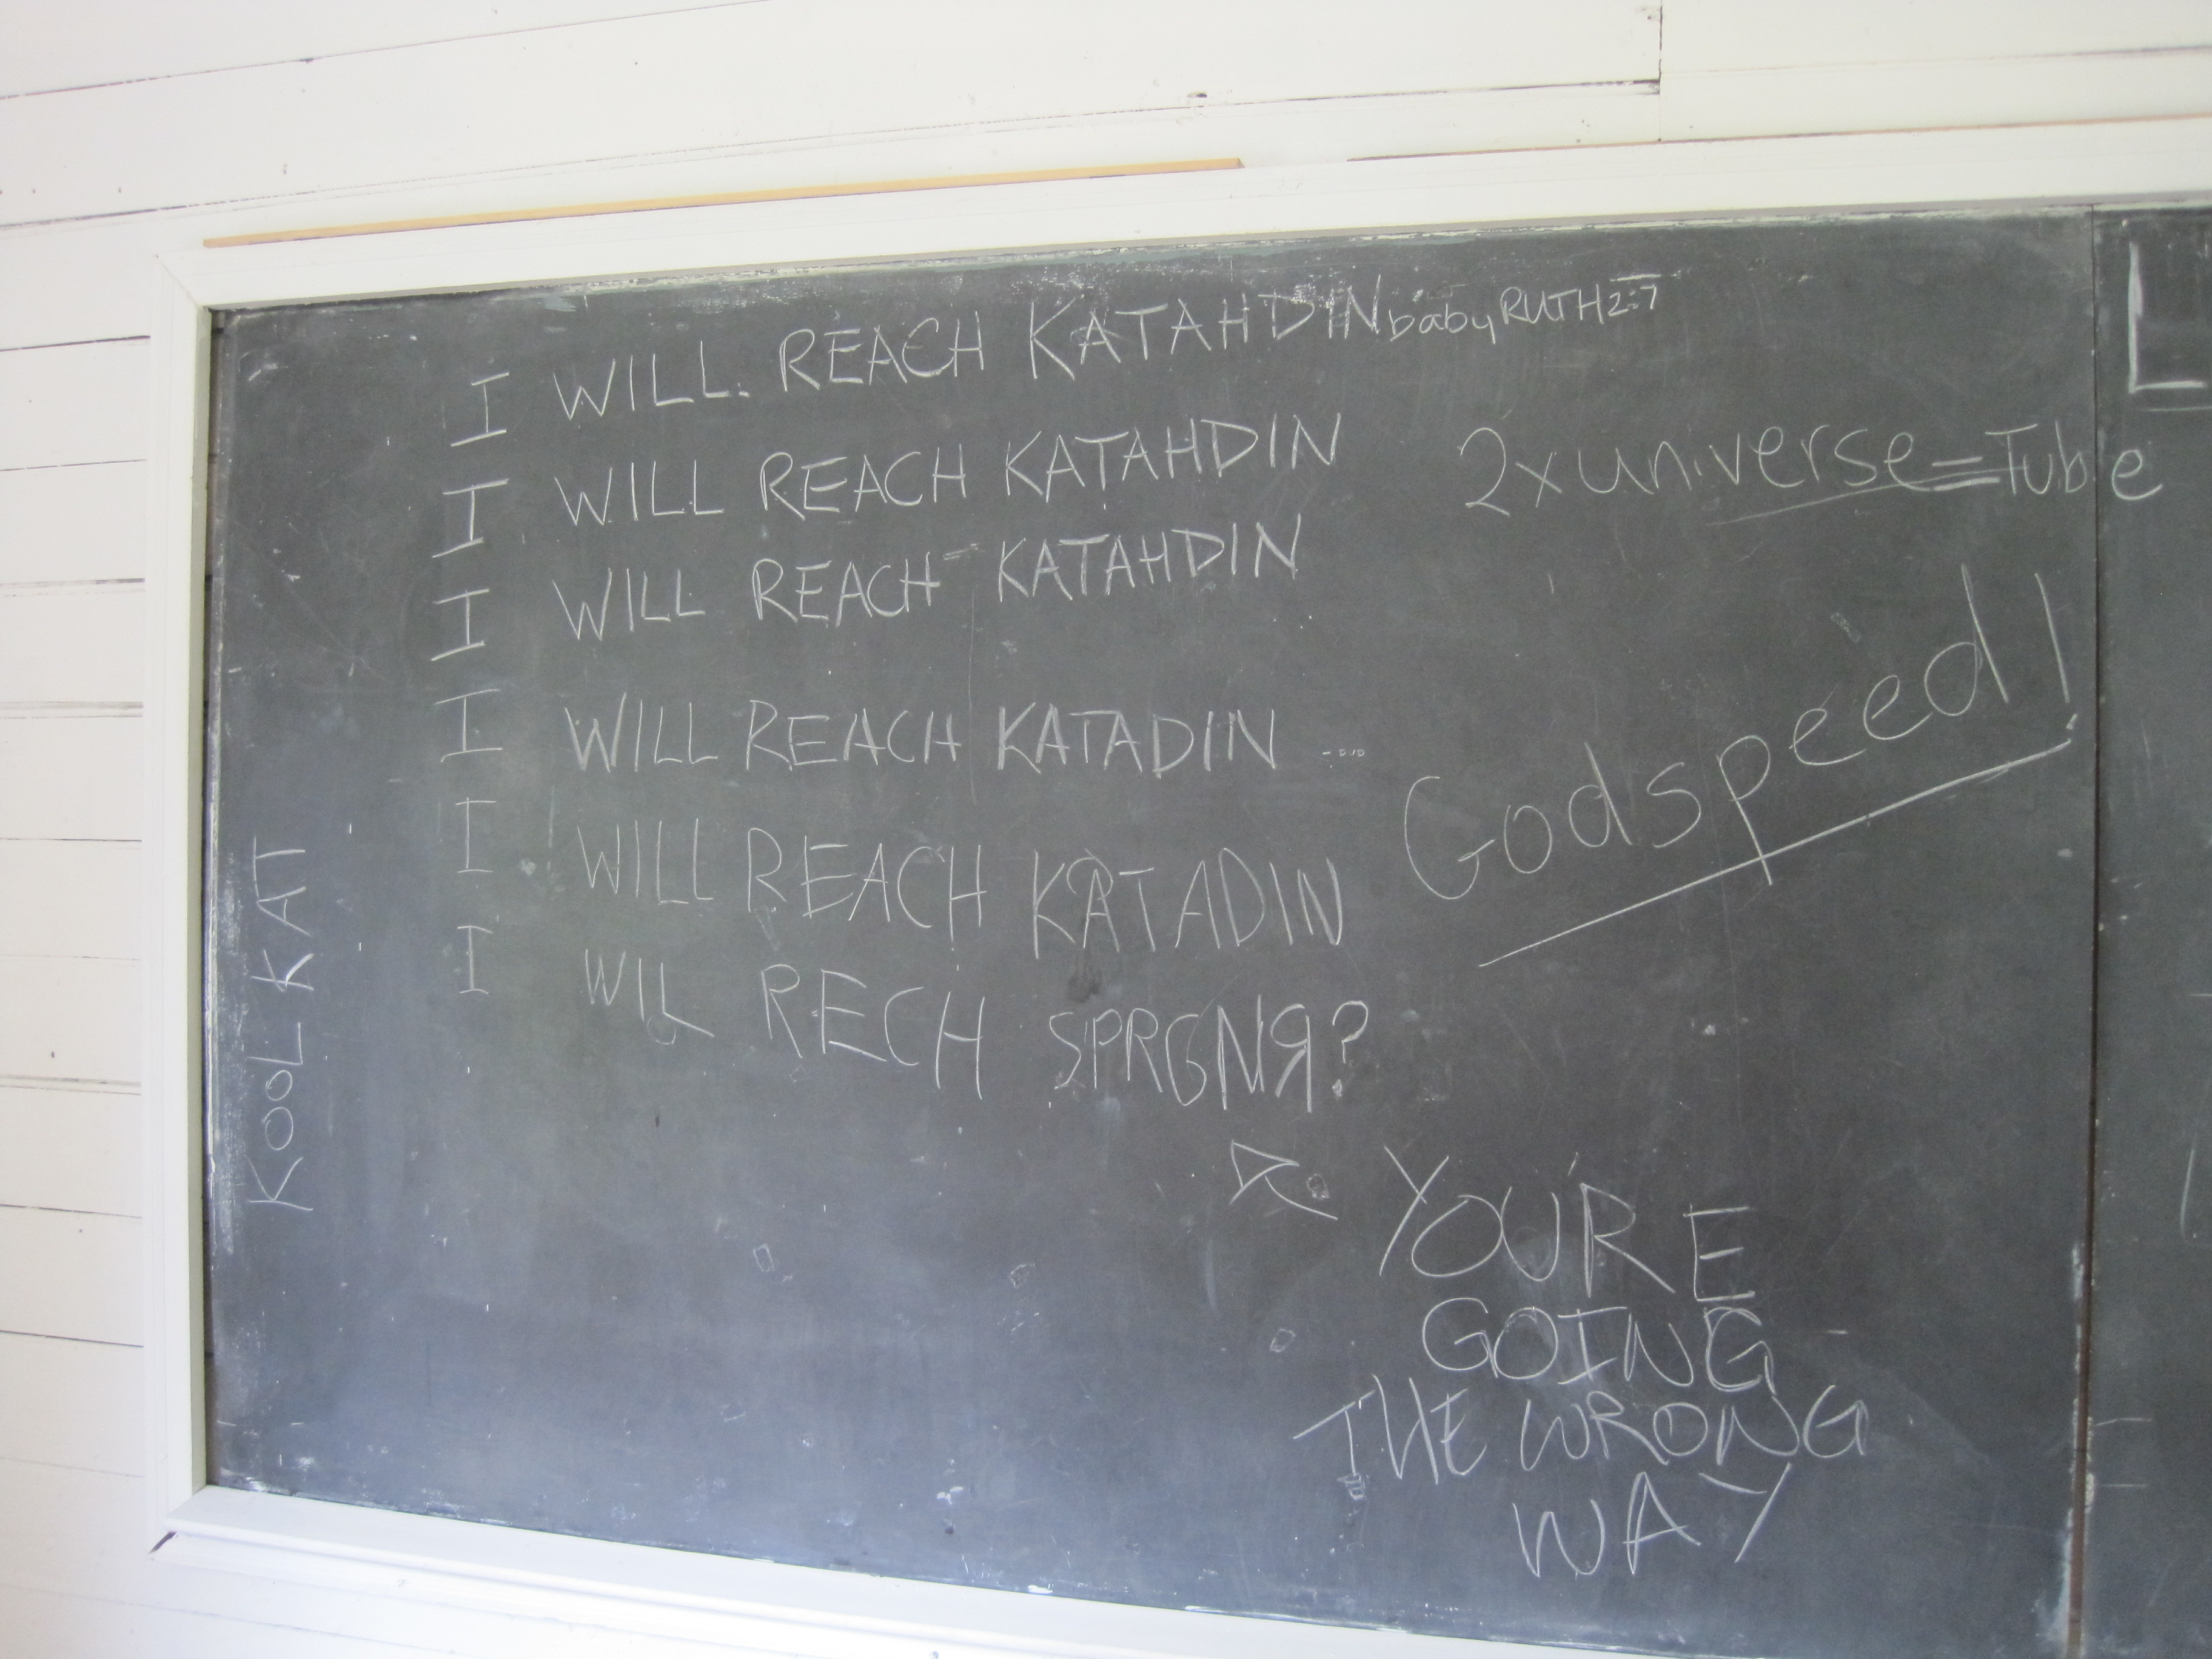 I WILL. REACH KATAHDIN baby RUTH 2:7
I WILL REACH KATAHDIN
2x universe = Tube
I WILL REACH KATAHDIN
I WILL REACH KATADIN ...
Godspeed!
I WILL REACH KATADIN
I WIL RECH SPRGNЯ?
KOOL KAT
YOU'RE
GOING
THE WRONG
WAY
L